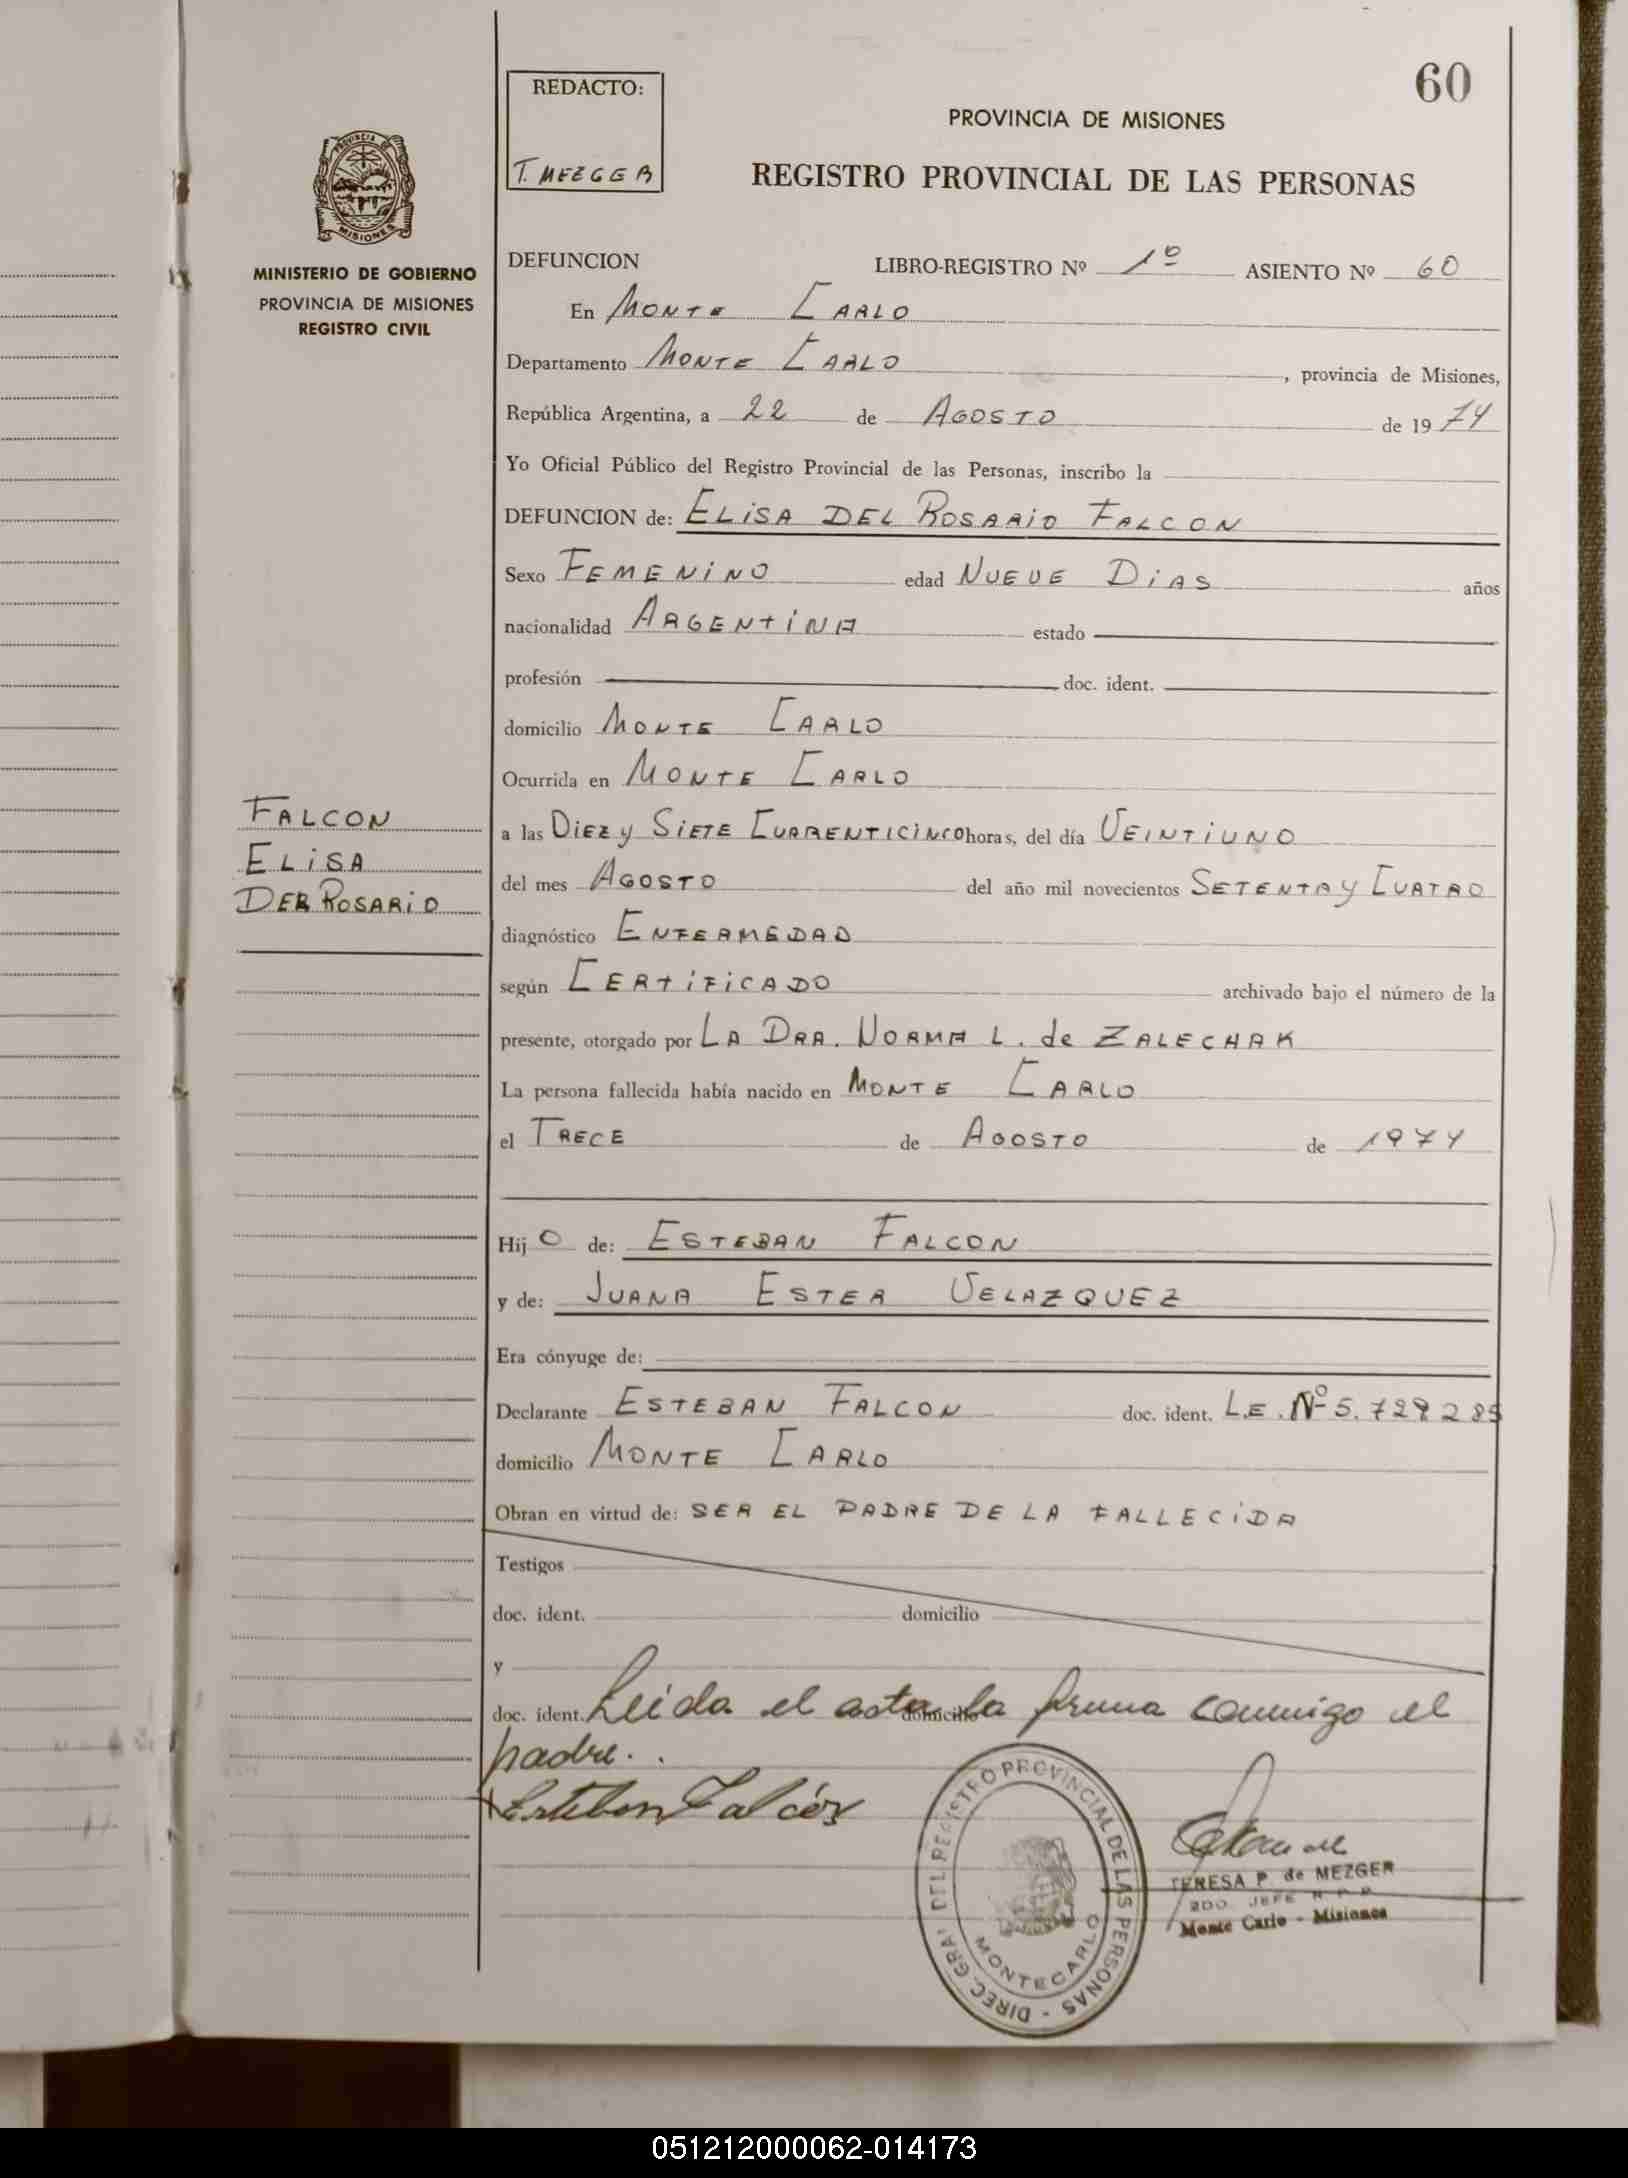 60
REDACTO:
T. MEZGER
PROVINCIA DE MISIONES
REGISTRO PROVINCIAL DE LAS PERSONAS
PROVINCIA DE
MISIONES
MINISTERIO DE GOBIERNO
PROVINCIA DE MISIONES
REGISTRO CIVIL
DEFUNCION LIBRO-REGISTRO Nº 1º ASIENTO Nº 60
En MONTE CARLO
Departamento MONTE CARLO , provincia de Misiones,
República Argentina, a 22 de AGOSTO de 1974
Yo Oficial Público del Registro Provincial de las Personas, inscribo la
DEFUNCION de: ELISA DEL ROSARIO FALCON
Sexo FEMENINO edad NUEVE DIAS años
nacionalidad ARGENTINA estado
profesión doc. ident.
domicilio MONTE CARLO
Ocurrida en MONTE CARLO
FALCON
ELISA
DEL ROSARIO
a las DIEZ y SIETE CUARENTICINCO horas, del día VEINTIUNO
del mes AGOSTO del año mil novecientos SETENTA y CUATRO
diagnóstico ENFERMEDAD
según CERTIFICADO archivado bajo el número de la
presente, otorgado por LA DRA. NORMA L. de ZALECHAK
La persona fallecida había nacido en MONTE CARLO
el TRECE de AGOSTO de 1974
Hij O de: ESTEBAN FALCON
y de: JUANA ESTER VELAZQUEZ
Era cónyuge de:
Declarante ESTEBAN FALCON doc. ident. L.E. Nº 5.729 285
domicilio MONTE CARLO
Obran en virtud de: SER EL PADRE DE LA FALLECIDA
Testigos
doc. ident. domicilio
y
doc. ident. domicilio
Leida el acta la firma conmigo el
padre.
Esteban Falcón
DIREC. GRAL. DEL REGISTRO PROVINCIAL DE LAS PERSONAS -
MONTECARLO
TERESA P. de MEZGER
2DO. JEFE R. P. P.
Monte Carlo - Misiones
051212000062-014173